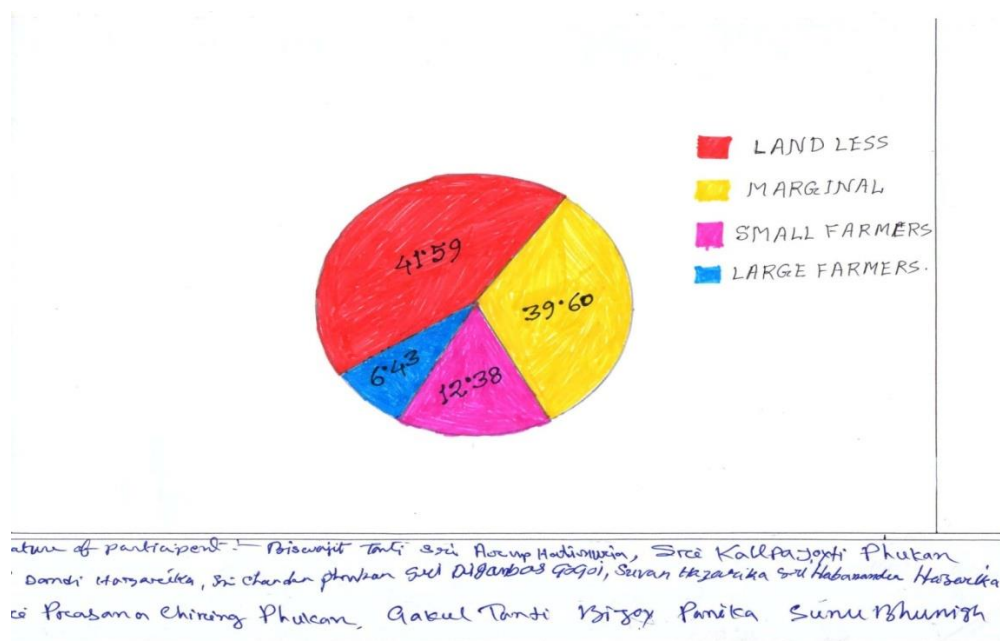 LAND LESS
MARGINAL
SMALL FARMERS
LARGE FARMERS.
41.59
39.60
6.43
12.38
ature of participent :- Biswajit Tanti sri Hatimuria, Sree Kallpajoyti Phukan
Dandi Hazareika, Sri Chandan phukan Sri Digambas Gogoi, Suvan Hazarika Sri Hazarika
Chiring Phukan, Gakul Tanti Bijoy Panika Sunu Bhumigh